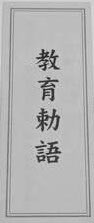 教育勅語